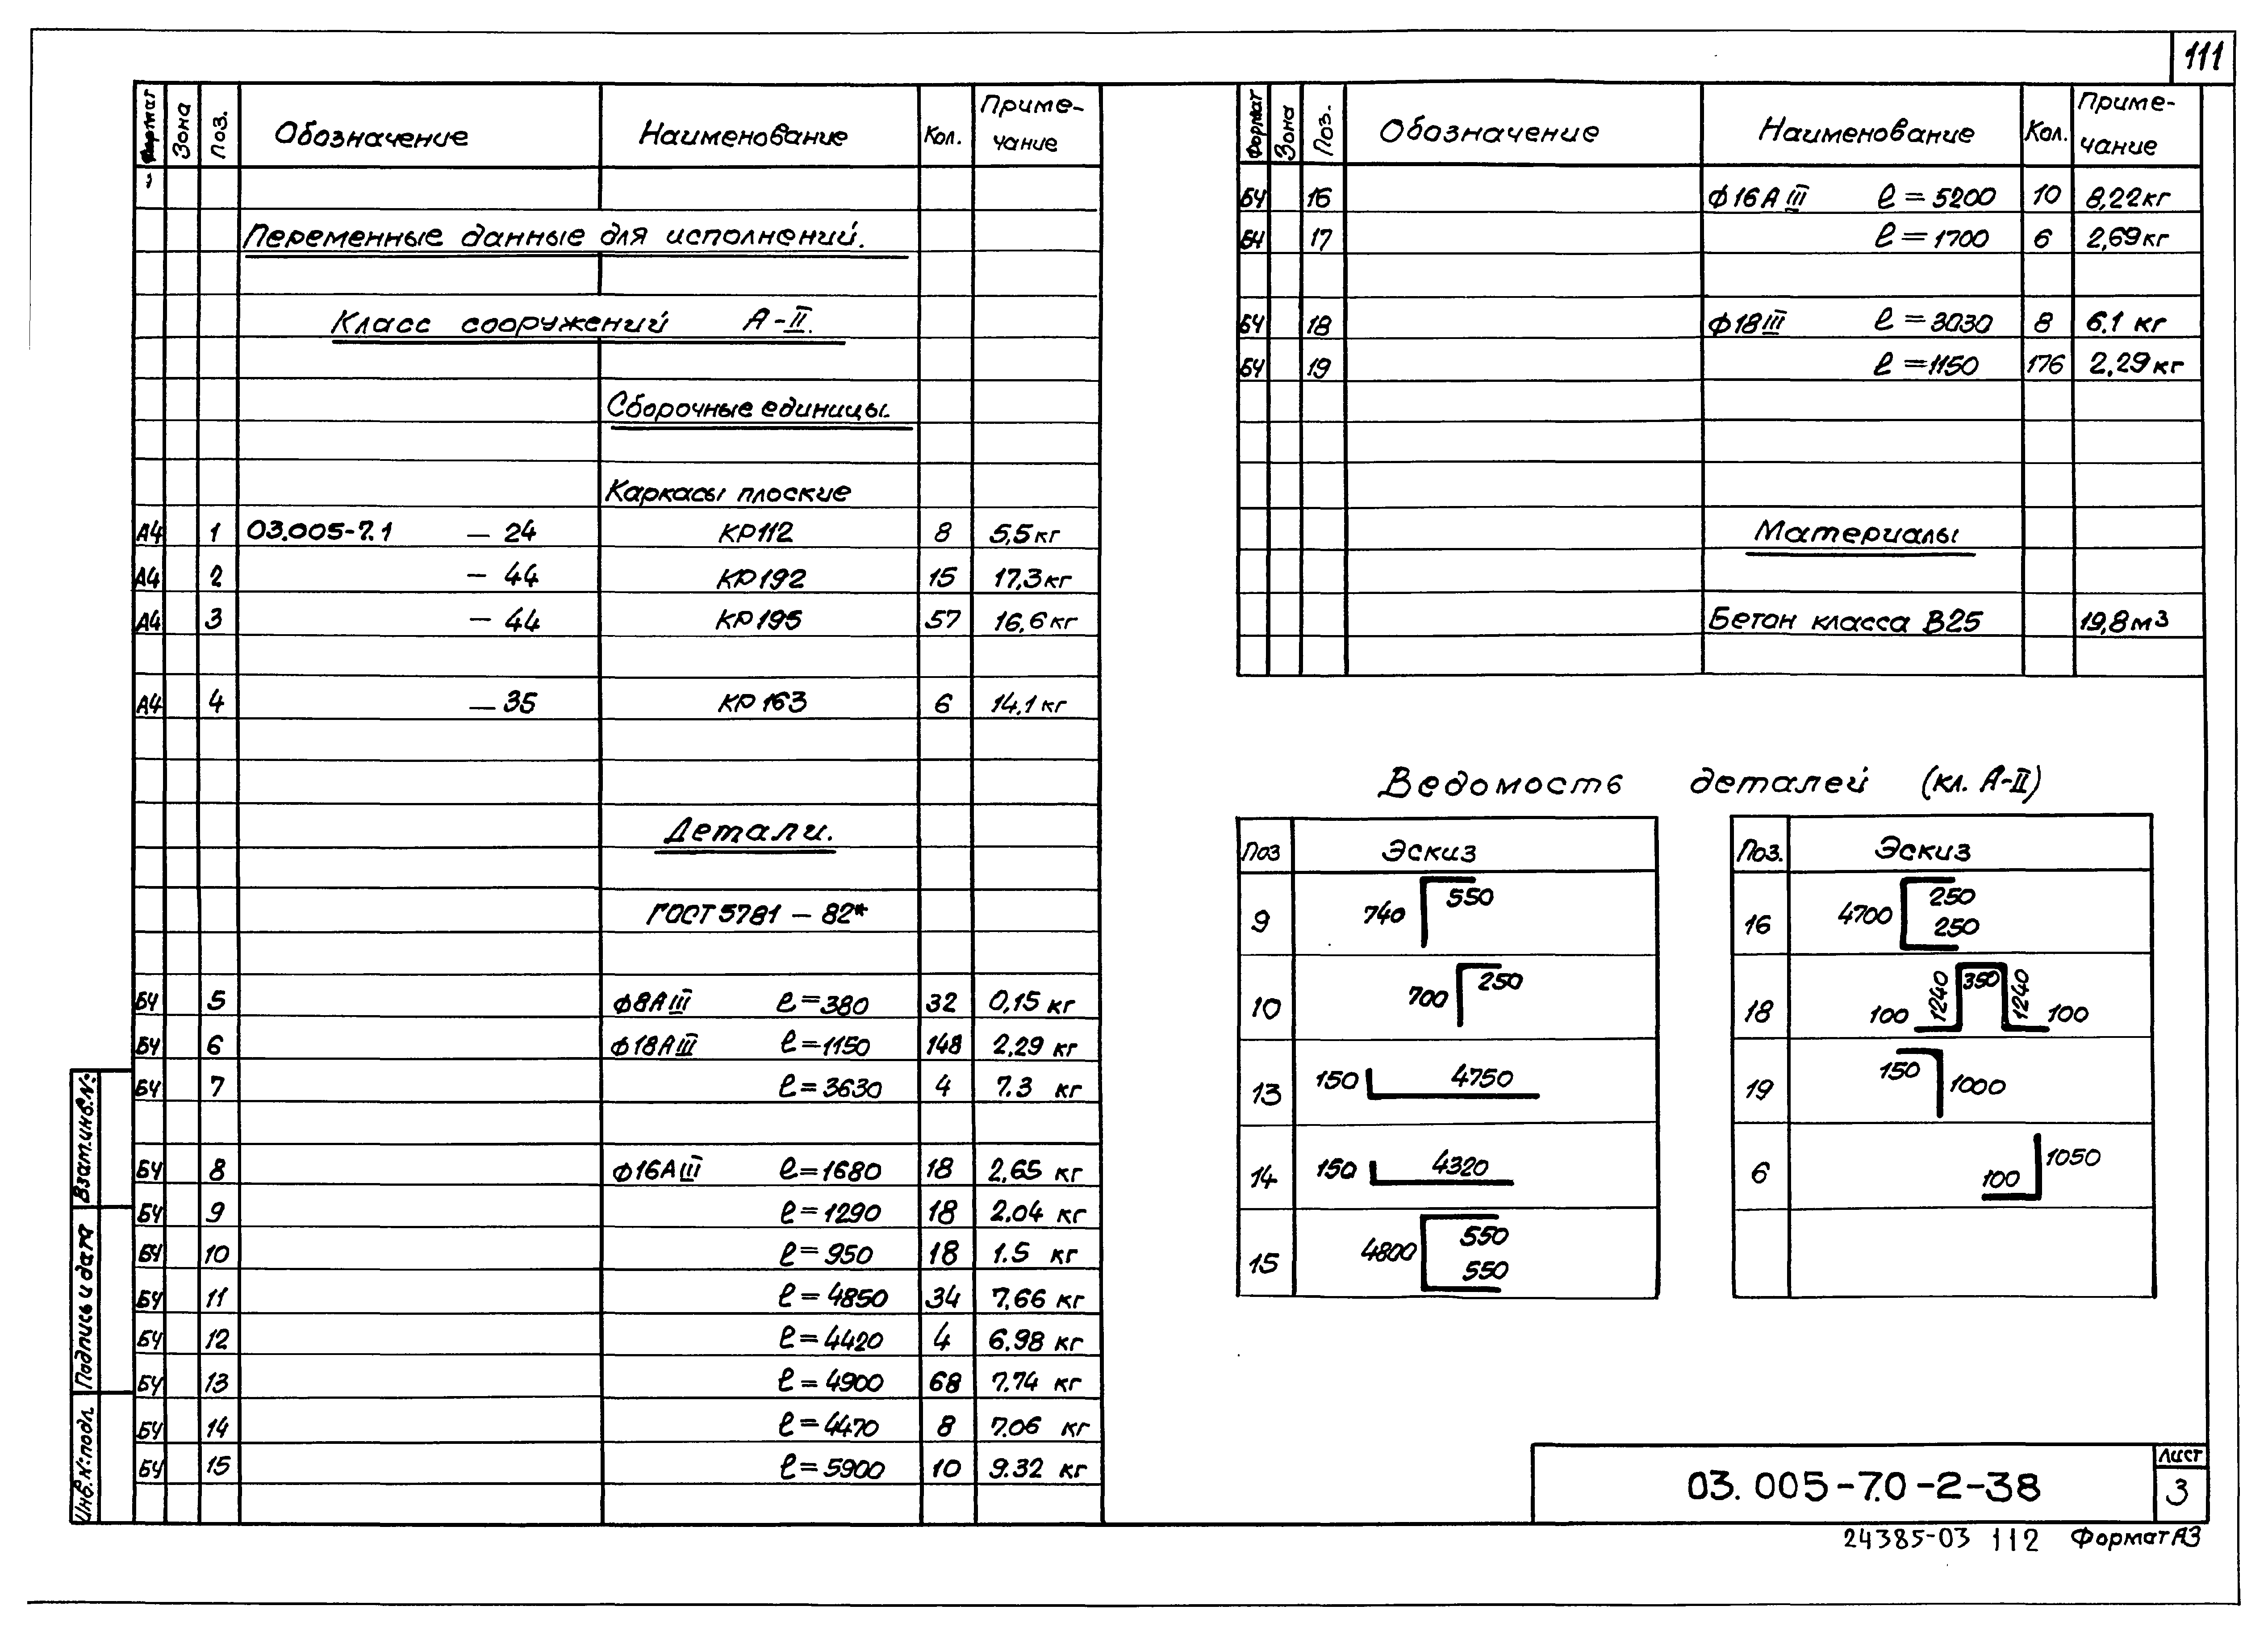 111
Формат Зона Поз. Обозначение Наименование Кол. Приме-
чание
Переменные данные для исполнений.
Класс сооружений А-II.
Сборочные единицы.
Каркасы плоские
А4 1 03.005-7.1 – 24 КР112 8 5,5кг
А4 2 – 44 КР192 15 17,3кг
А4 3 – 44 КР195 57 16,6кг
А4 4 – 35 КР163 6 14,1кг
Детали.
ГОСТ 5781 – 82*
БЧ 5 ф8АIII ℓ=380 32 0,15 кг
БЧ 6 ф18АIII ℓ=1150 148 2,29 кг
БЧ 7 ℓ=3630 4 7.3 кг
БЧ 8 ф16АIII ℓ=1680 18 2,65 кг
БЧ 9 ℓ=1290 18 2.04 кг
БЧ 10 ℓ=950 18 1.5 кг
БЧ 11 ℓ=4850 34 7,66 кг
БЧ 12 ℓ=4420 4 6.98 кг
БЧ 13 ℓ=4900 68 7.74 кг
БЧ 14 ℓ=4470 8 7.06 кг
БЧ 15 ℓ=5900 10 9.32 кг
Инв.№подл. Подпись и дата Взам.инв.№
Формат Зона Поз. Обозначение Наименование Кол. Приме-
чание
БЧ 16 ф16АIII ℓ=5200 10 8,22кг
БЧ 17 ℓ=1700 6 2,69кг
БЧ 18 ф18III ℓ=3030 8 6.1 кг
БЧ 19 ℓ=1150 176 2,29кг
Материалы
Бетон класса В25 19,8м3
Ведомость деталей (кл. А-II)
Поз Эскиз
9 740 550
10 700 250
13 150 4750
14 150 4320
15 4800 550
550
Поз. Эскиз
16 4700 250
250
18 100 1240 350 1240 100
19 150 1000
6 100 1050
03.005-7.0-2-38
Лист
3
24385-03 112 Формат А3